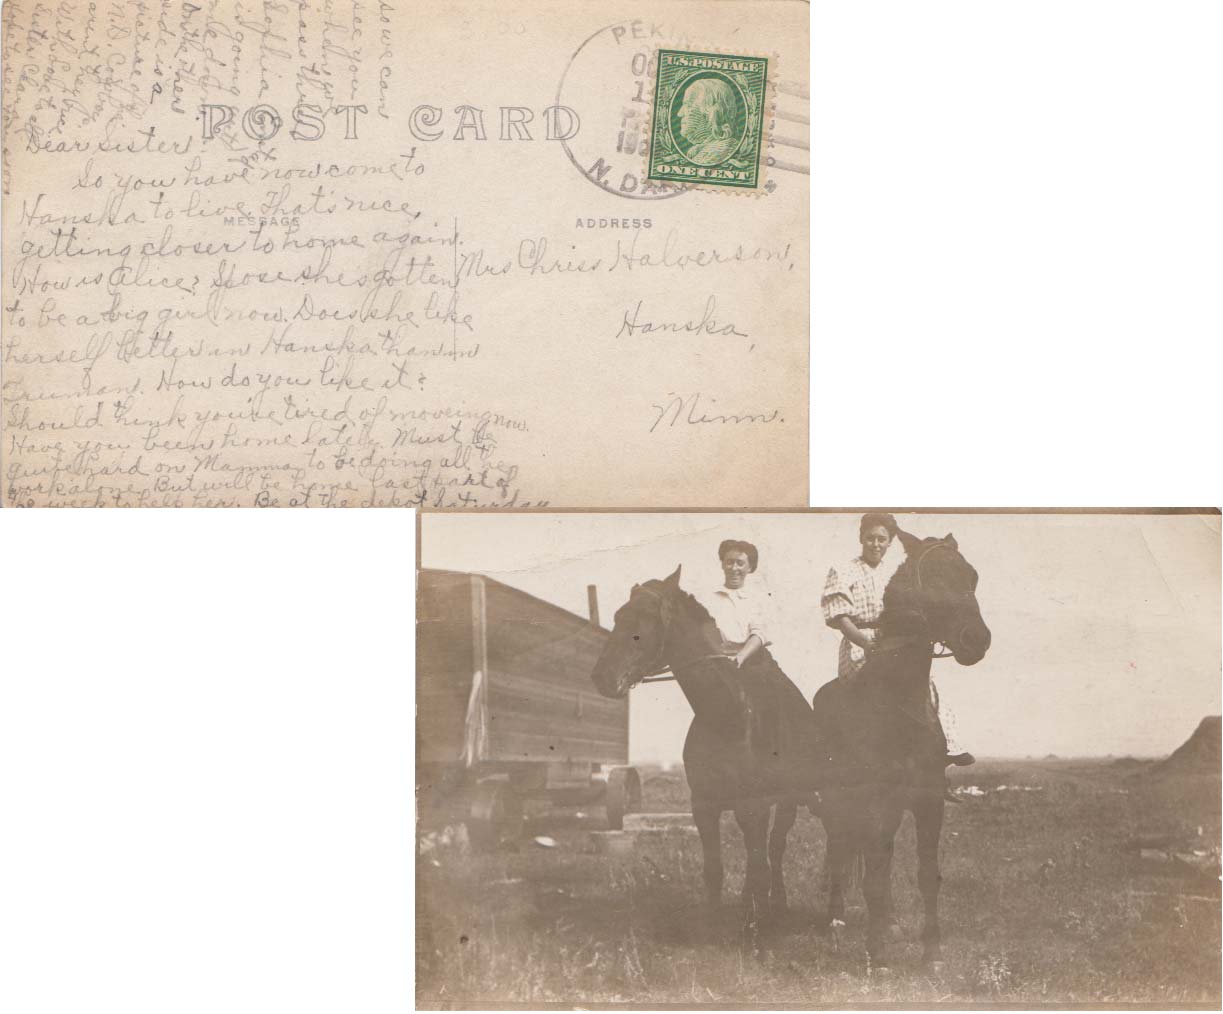 POST CARD
MESSAGE
ADDRESS
PEKIN
N. DAK
U.S. POSTAGE
ONE CENT
Dear Sister:
So you have now come to
Hanska to live. That's nice,
getting closer to home again.
How is Alice? Spose she's gotten
to be a big girl now. Does she like
herself better in Hanska than in
Truman. How do you like it?
Should think you're tired of moveing now.
Have you been home lately. Must be
quite hard on Mamma to be doing all the
work alone. But will be home last part of
the week to help her. Be at the depot Saturday
so we can
see you
when we
pass thru
Sophia
is going
me down
On the other
side is a
picture of
N.D.
With love
Sister Clara
Mrs Chriss Halverson,
Hanska,
Minn.